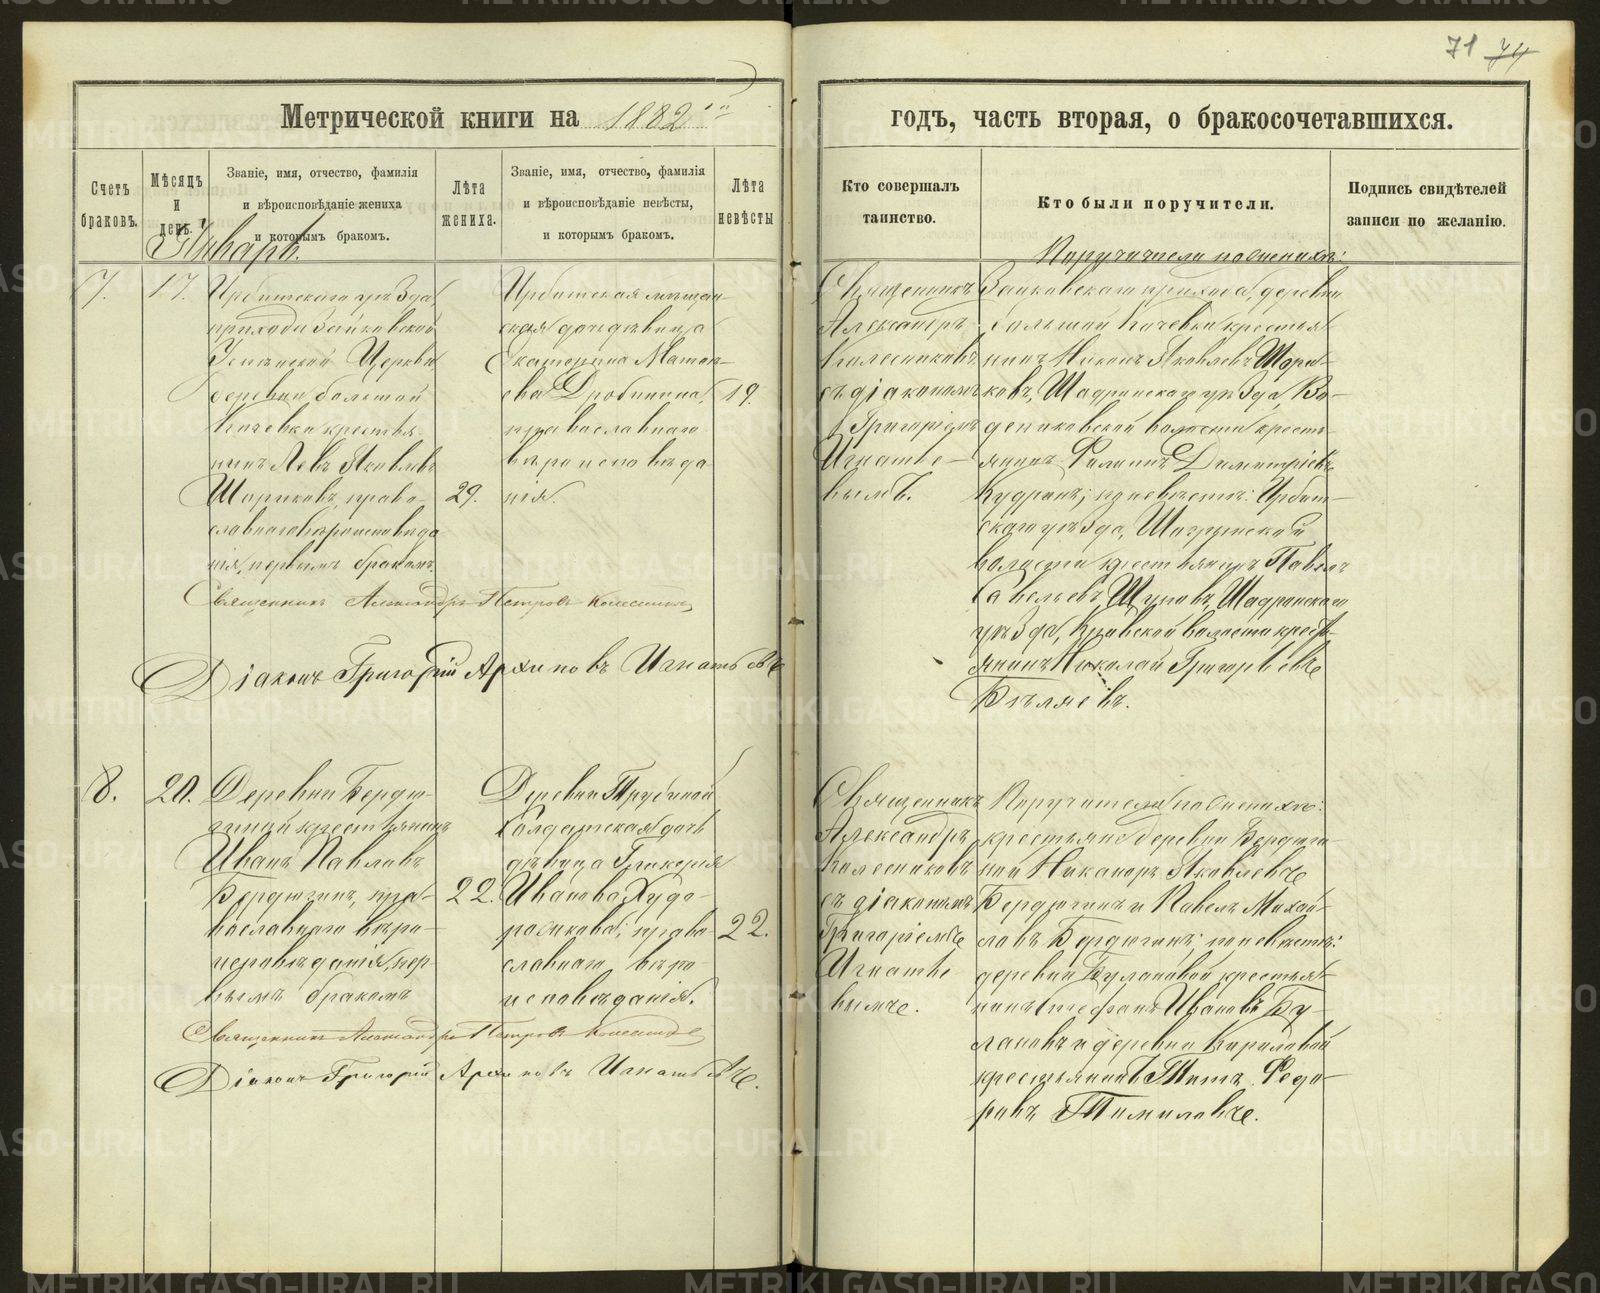 71 74
Метрической книги на 1882й
годъ, часть вторая, о бракосочетавшихся.
Счетъ браковъ.
Мѣсяцъ и день.
Званіе, имя, отчество, фамилія
и вѣроисповѣданіе жениха
и которымъ бракомъ.
Лѣта жениха.
Званіе, имя, отчество, фамилія
и вѣроисповѣданіе невѣсты,
и которымъ бракомъ.
Лѣта невѣсты
Кто совершалъ
таинство.
Кто были поручители.
Подпись свидѣтелей
записи по желанію.
Январь.
7.
17.
Ирбитскаго уѣзда
прихода Зайковской
Успѣнской Церкви
деревни большой
Кочевки крестья-
нинъ Левъ Яковлевъ
Шориковъ, право-
славнаго вѣроисповѣда
нія, первымъ бракомъ.
29.
Ирбитская мѣщан-
ская дочь дѣвица
Екатерина Матвѣ-
ева Дробинина,
православнаго
вѣроисповѣда-
нія.
19.
Священникъ
Александръ
Колесниковъ
съ діакономъ
Григоріемъ
Игнатье-
вымъ.
Поручители по женихѣ:
Зайковскаго прихода, деревни
большой Кочевки крестья-
нинъ Никонъ Яковлевъ Шори-
ковъ, Шадринскаго уѣзда,
волости кресть-
янинъ Филиппъ Димитріевъ
по невѣстѣ: Ирбит-
скаго уѣзда,
волости крестьянинъ Павелъ
Савельевъ Шадринскаго
уѣзда, волости крест-
янинъ Николай Григорьевъ
Бѣляевъ.
Священникъ Александръ Петровъ Колесниковъ
Діаконъ Григорій Архиповъ Игнатьевъ
8.
20.
Деревни Бердю-
гиной крестьянинъ
Иванъ Павловъ
Бердюгинъ, пра-
вославнаго вѣро-
исповѣданія, пер-
вымъ бракомъ
22.
Деревни Трубиной
Солдатская дочь
дѣвица Гликерія
Иванова Худо-
рожкова, право-
славнаго вѣро-
исповѣданія.
22.
Священникъ
Александръ
Колесниковъ
съ діакономъ
Григоріемъ
Игнатье
вымъ.
Поручители по женихѣ:
крестьяне деревни Бердюги-
ной Никаноръ Яковлевъ
Бердюгинъ и Павелъ Михай-
ловъ Бердюгинъ; по невѣстѣ:
деревни Булановой крестья-
нинъ Стефанъ Ивановъ Бу-
лановъ и деревни Кириловой
крестьянинъ Титъ Федо-
ровъ Томиловъ.
Священникъ Александръ Петровъ Колесниковъ
Діаконъ Григорій Архиповъ Игнатьевъ.
METRIKI.GASO-URAL.RU